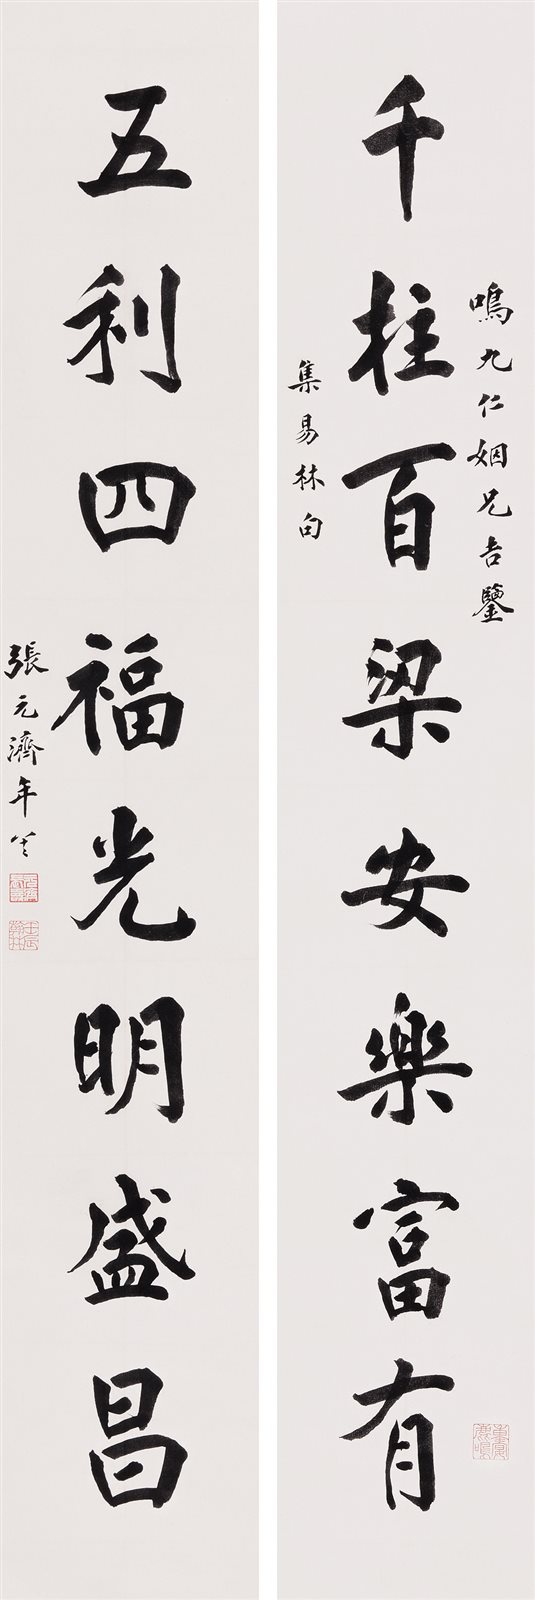 鳴九仁姻兄吉鑒
千柱百梁安樂富有
集易林句
五利四福光明盛昌
張元濟年